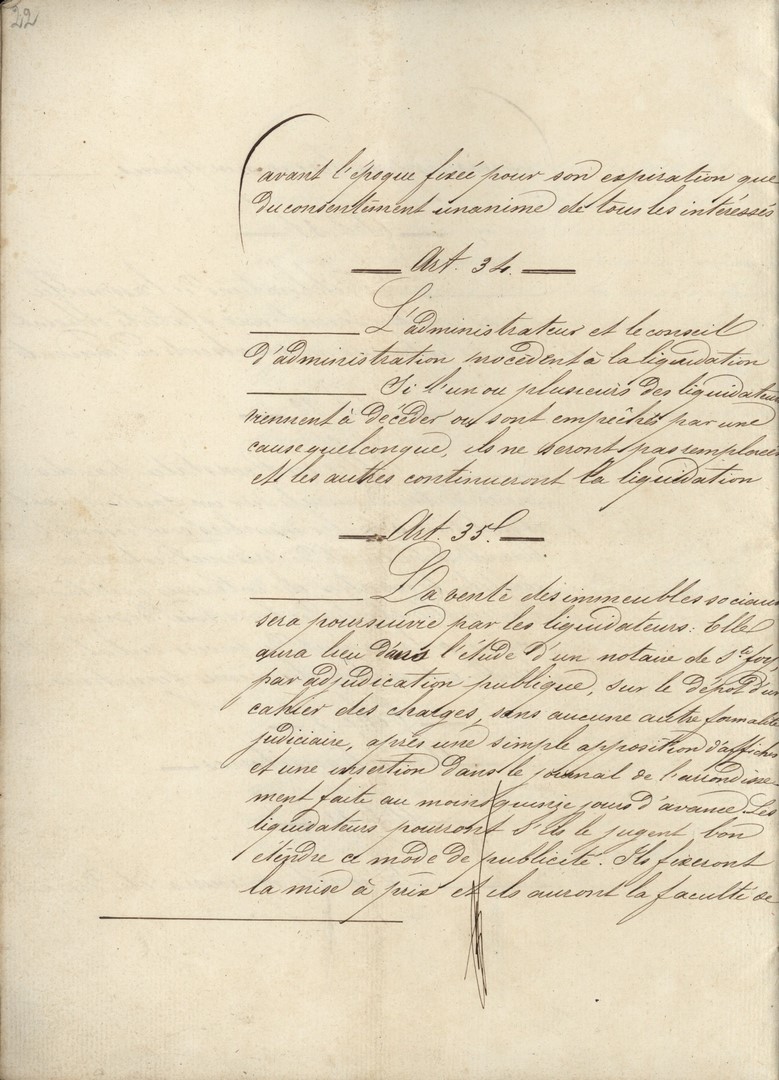 22
avant l'époque fixée pour son expiration que
du consentement unanime de tous les intéressés
Art. 34.
L'administrateur et le conseil
d'administration procèdent à la liquidation
Si l'un ou plusieurs des liquidateurs
viennent à décéder ou sont empêchés par une
cause quelconque, ils ne seront pas remplacés
et les autres continueront la liquidation
Art. 35.
La vente des immeubles sociaux
sera poursuivie par les liquidateurs: Elle
aura lieu dans l'étude d'un notaire de Ste foy
par adjudication publique, sur le dépot d'un
cahier des charges, sans aucune autre formalité
judiciaire, après une simple apposition d'affiches
et une insertion dans le journal de l'arrondisse-
ment faite au moins quinze jours d'avance. Les
liquidateurs pourront s'ils le jugent bon
étendre ce mode de publicité. Ils fixeront
la mise à prix et ils auront la faculté de